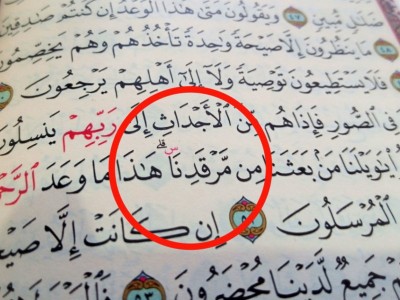 ضَلَٰلٍ مُّبِينٍ ٤٧ وَيَقُولُونَ مَتَىٰ هَٰذَا ٱلْوَعْدُ إِن كُنتُمْ صَٰدِقِينَ
٤٨ مَا يَنظُرُونَ إِلَّا صَيْحَةً وَٰحِدَةً تَأْخُذُهُمْ وَهُمْ يَخِصِّمُونَ
فَلَا يَسْتَطِيعُونَ تَوْصِيَةً وَلَآ إِلَىٰٓ أَهْلِهِمْ يَرْجِعُونَ
فِى ٱلصُّورِ فَإِذَا هُم مِّنَ ٱلْأَجْدَاثِ إِلَىٰ رَبِّهِمْ يَنسِلُونَ
يَٰوَيْلَنَا مَنۢ بَعَثَنَا مِن مَّرْقَدِنَا ۜ ۗ هَٰذَا مَا وَعَدَ ٱلرَّحْمَٰنُ
ٱلْمُرْسَلُونَ ٥٢ إِن كَانَتْ إِلَّا صَيْحَةً
جَمِيعٌ لَّدَيْنَا مُحْضَرُونَ ٥٣ فَٱلْيَوْمَ